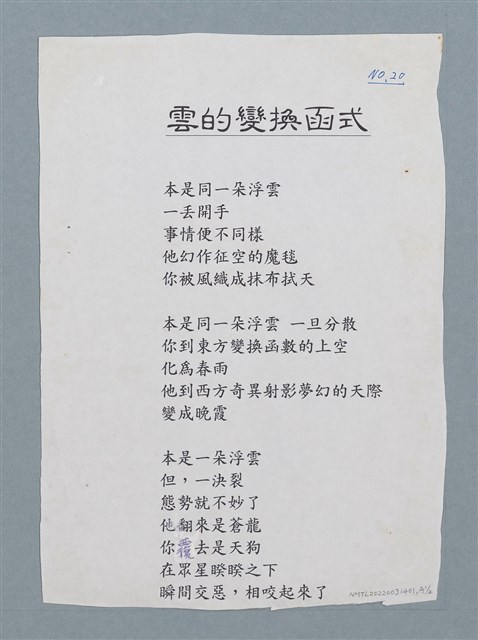 NO.20
雲的變換函式
本是同一朵浮雲
一丟開手
事情便不同樣
他幻作征空的魔毯
你被風織成抹布拭天
本是同一朵浮雲 一旦分散
你到東方變換函數的上空
化為春雨
他到西方奇異射影夢幻的天際
變成晚霞
本是一朵浮雲
但，一決裂
態勢就不妙了
他翻來是蒼龍
你覆去是天狗
在眾星睽睽之下
瞬間交惡，相咬起來了